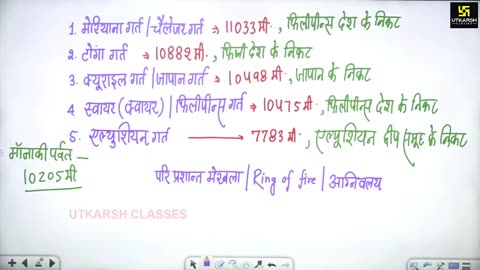 1. मेरियाना गर्त / चैलेंजर गर्त → 11033 मी., फिलीपीन्स देश के निकट
UTKARSH CLASSES
2. टोंगा गर्त → 10882 मी., फिजी देश के निकट
3. क्यूराइल गर्त / जापान गर्त → 10498 मी., जापान के निकट
4. स्वायर (क्वायर) / फिलीपीन्स गर्त → 10475 मी., फिलीपीन्स देश के निकट
5. एल्युशियन गर्त → 7783 मी., एल्यूशियन द्वीप समूह के निकट
मॉनाकी पर्वत –
10205 मी
परि प्रशान्त मेखला / Ring of fire / अग्निवलय
UTKARSH CLASSES